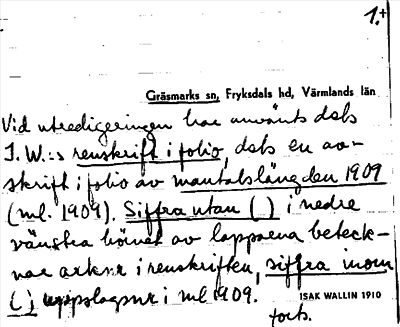 1.+
Gräsmarks sn, Fryksdals hd, Värmlands län
Vid utredigeringen har använts dels
I. W.:s renskrift i folio, dels en av-
skrift i folio av mantalslängden 1909
(ml. 1909). Siffra utan ( ) i nedre
vänstra hörnet av lapparna beteck-
nar arknr i renskriften, siffra inom
( ) uppslagsnr i ml 1909.
ISAK WALLIN 1910
forts.